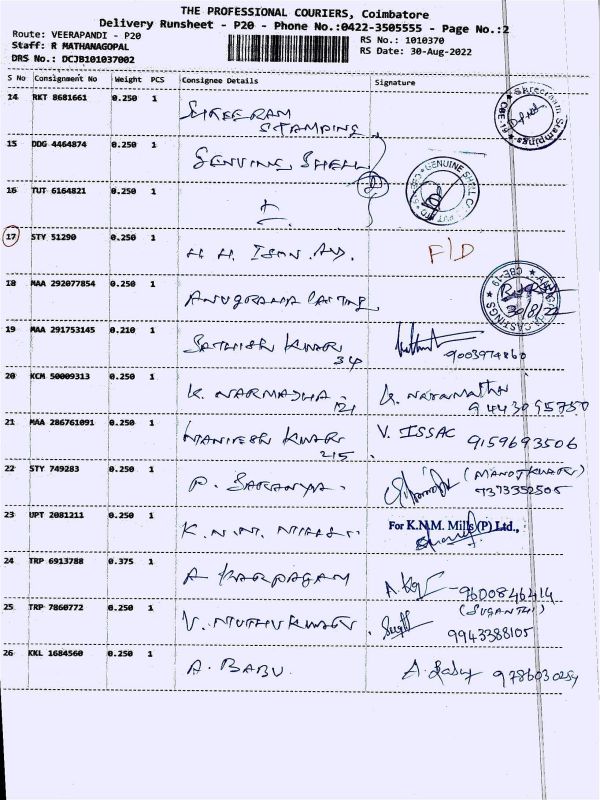 THE PROFESSIONAL COURIERS, Coimbatore
Delivery Runsheet - P20 - Phone No.:0422-3505555 - Page No.:2
Route: VEERAPANDI - P20
RS No.: 1010370
Staff: R MATHANAGOPAL
RS Date: 30-Aug-2022
DRS No.: DCJB101037002
S No Consignment No Weight PCS Consignee Details Signature
14 RKT 8681661 0.250 1 SHREERAM
STAMPING
15 DDG 4464874 0.250 1 GENUINE SHELL
16 TUT 6164821 0.250 1
17 STY 51290 0.250 1 H. H. F/D
18 MAA 292077854 0.250 1 ANUGRAHA CASTING
30/8/22
19 MAA 291753145 0.210 1 SATHISH KUMAR
34 9003974860
20 KCM 50009313 0.250 1 K. NARMADHA K. Narmatha
121 9443095750
21 MAA 286761091 0.250 1 MANIESH KUMAR V. ISSAC 9159693506
215
22 STY 749283 0.250 1 P. SARANYA (MANOJKUMAR)
7373352505
23 UPT 2081211 0.250 1 K.N.M. MILLS For K.N.M. Mills (P) Ltd.,
24 TRP 6913788 0.375 1 A KARPAGAM 9600846414
25 TRP 7860772 0.250 1 V. MUTHUKUMAR (SUGANTHI)
9943388105
26 KKL 1684560 0.250 1 A. BABU A. Babu 9786030254